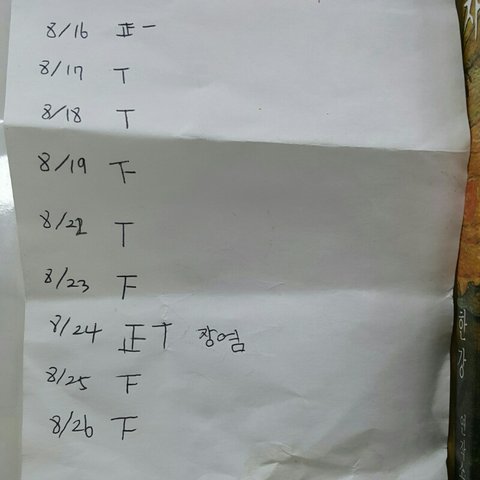 8/16 正一
8/17 T
8/18 T
8/19 下
8/22 T
8/23 F
8/24 正T 장염
8/25 F
8/26 F
한강